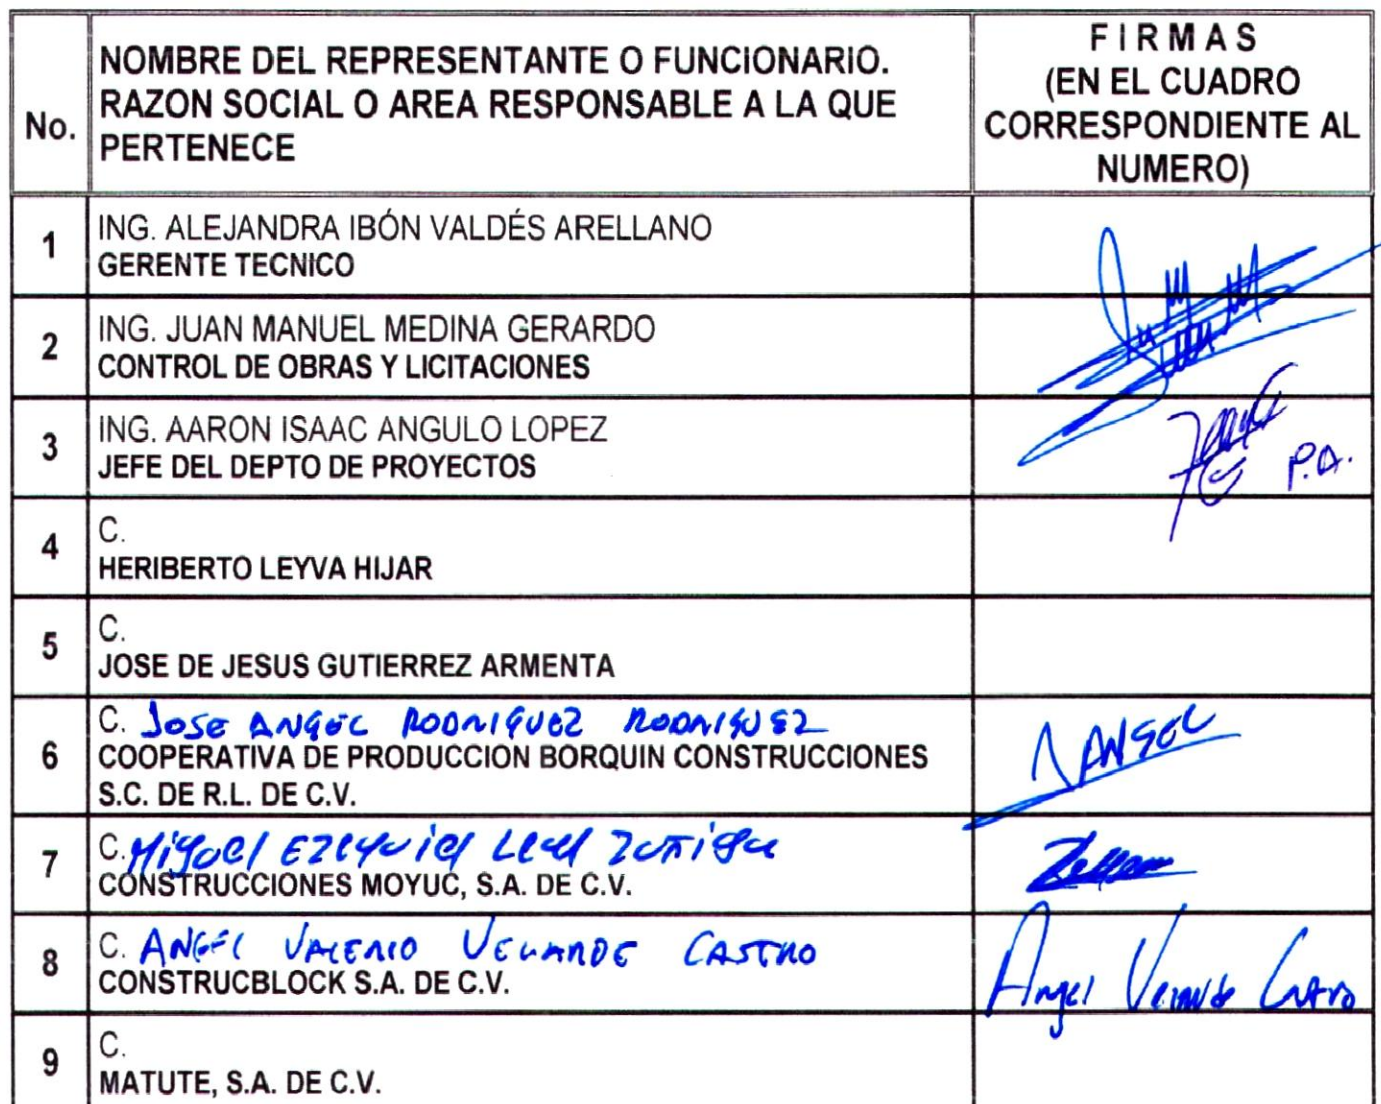 No.
NOMBRE DEL REPRESENTANTE O FUNCIONARIO.
RAZON SOCIAL O AREA RESPONSABLE A LA QUE
PERTENECE
F I R M A S
(EN EL CUADRO
CORRESPONDIENTE AL
NUMERO)
1
ING. ALEJANDRA IBÓN VALDÉS ARELLANO
GERENTE TECNICO
2
ING. JUAN MANUEL MEDINA GERARDO
CONTROL DE OBRAS Y LICITACIONES
3
ING. AARON ISAAC ANGULO LOPEZ
JEFE DEL DEPTO DE PROYECTOS
P.A.
4
C.
HERIBERTO LEYVA HIJAR
5
C.
JOSE DE JESUS GUTIERREZ ARMENTA
6
C. JOSE ANGEL RODRIGUEZ RODRIGUEZ
COOPERATIVA DE PRODUCCION BORQUIN CONSTRUCCIONES
S.C. DE R.L. DE C.V.
J ANGEL
7
C. Miguel Ezequiel Leal Zuñiga
CONSTRUCCIONES MOYUC, S.A. DE C.V.
8
C. ANGEL VALERIO VELARDE CASTRO
CONSTRUCBLOCK S.A. DE C.V.
Angel Velarde Castro
9
C.
MATUTE, S.A. DE C.V.